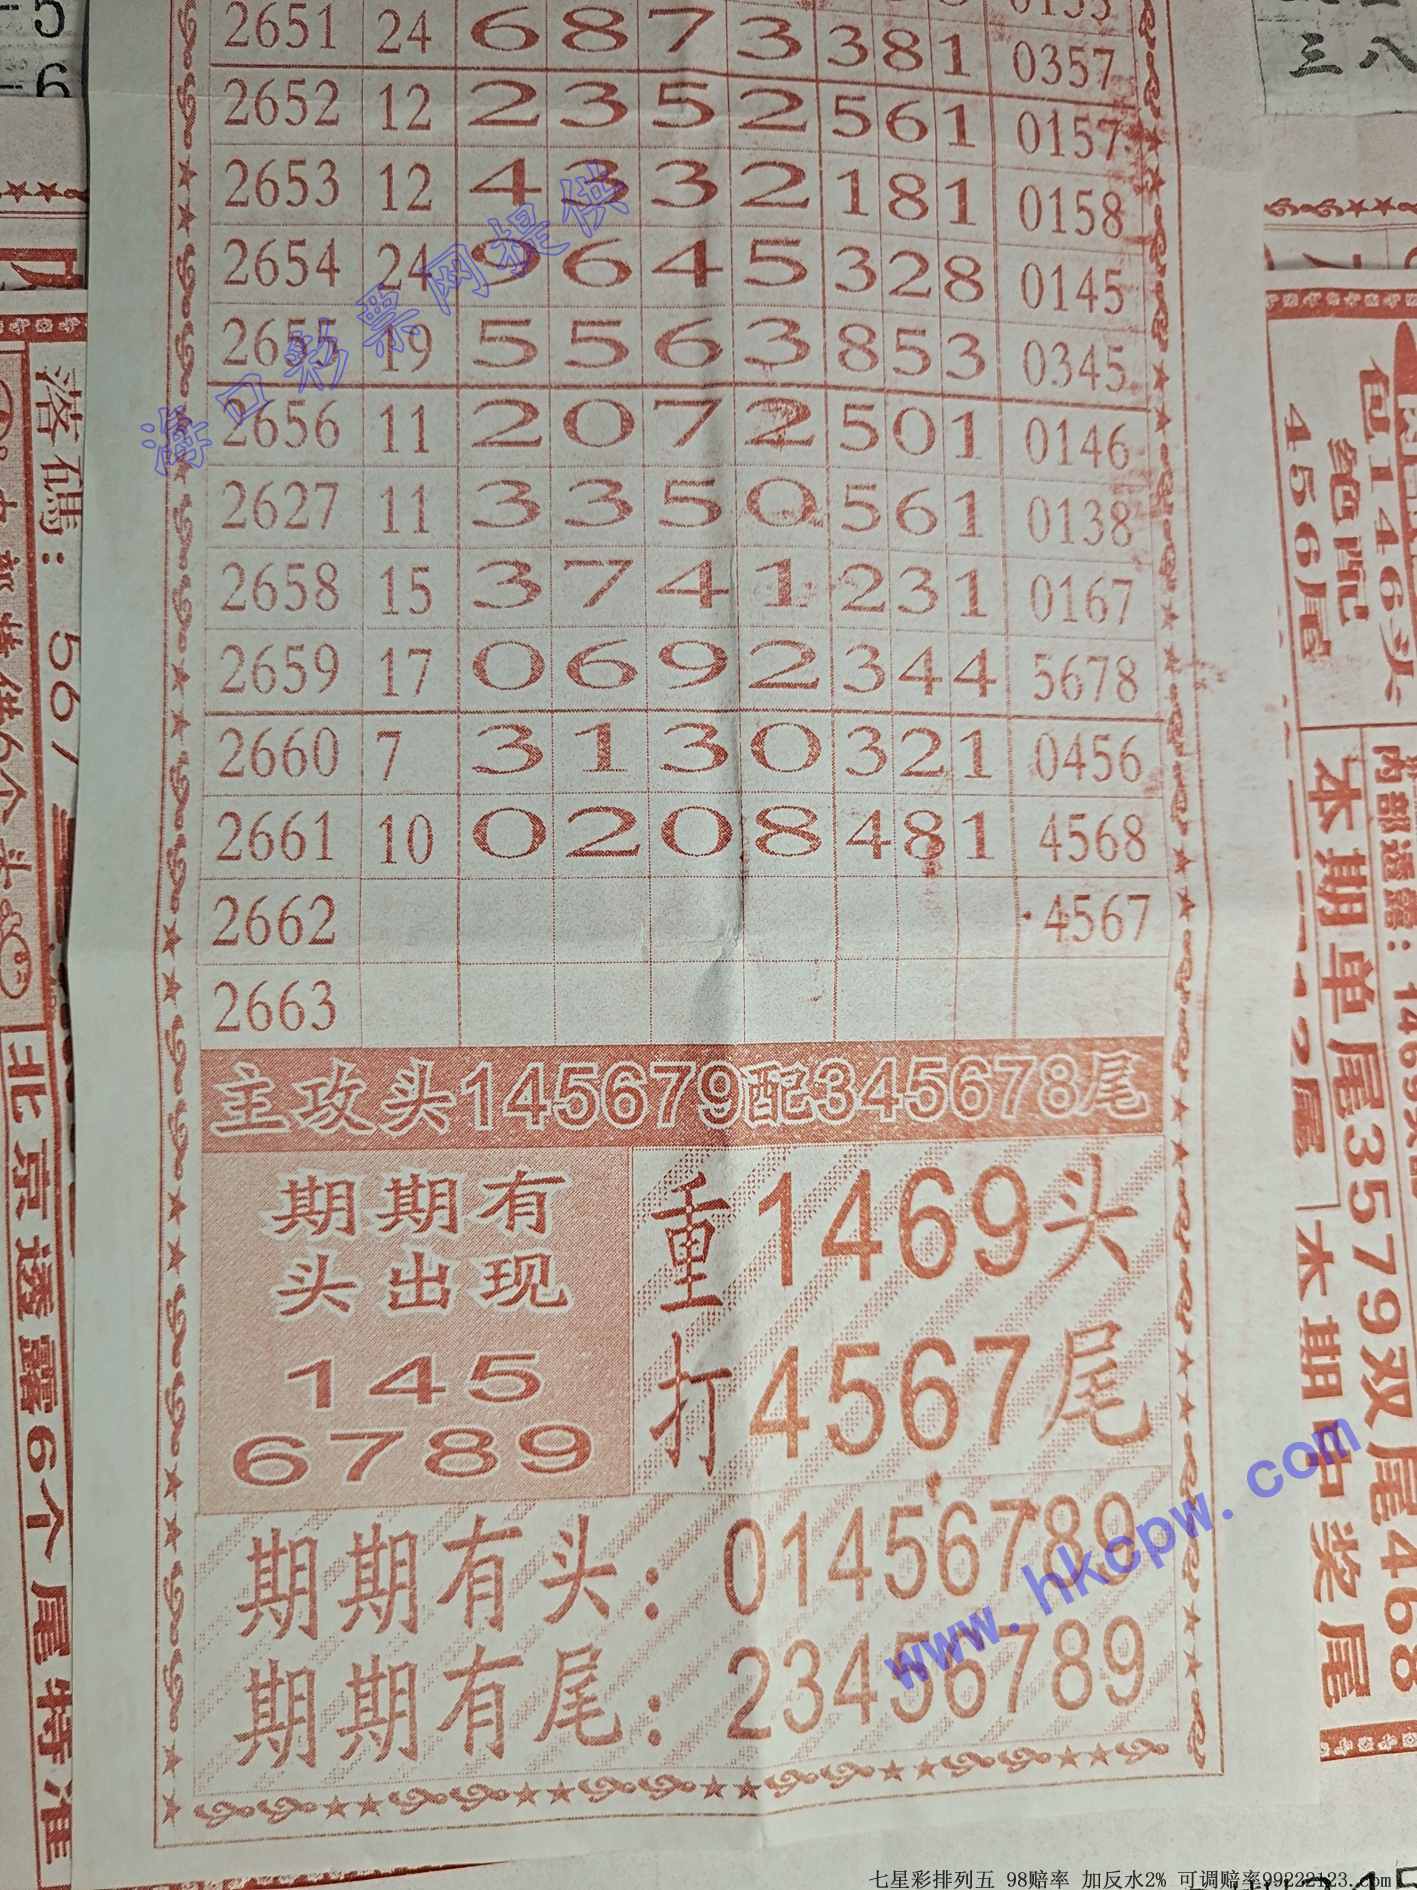 2651 24 6 8 7 3 3 8 1 0357
2652 12 2 3 5 2 5 6 1 0157
2653 12 4 3 3 2 1 8 1 0158
2654 24 9 6 4 5 3 2 8 0145
2655 19 5 5 6 3 8 5 3 0345
2656 11 2 0 7 2 5 0 1 0146
2627 11 3 3 5 0 5 6 1 0138
2658 15 3 7 4 1 2 3 1 0167
2659 17 0 6 9 2 3 4 4 5678
2660 7 3 1 3 0 3 2 1 0456
2661 10 0 2 0 8 4 8 1 4568
2662 4567
2663
主攻头145679配345678尾
期期有
头出现
145
6789
重打
1469头
4567尾
期期有头：01456789
期期有尾：23456789
海口彩票网提供
www.hkcpw.com
落碼：567
北京透露6个尾特准
三八
包146头
绝配
456尾
内部透露：1469头
本期单尾3579双尾468
本期中奖尾
七星彩排列五 98赔率 加反水2% 可调赔率99222123.com